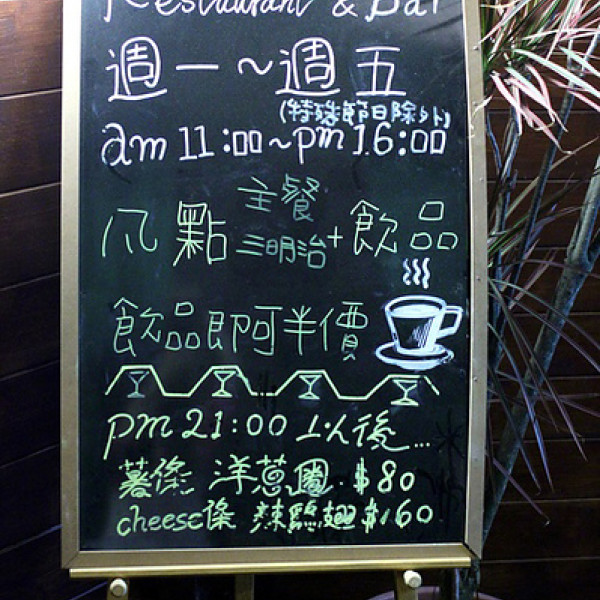 Restaurant & Bar
週一~週五
(特殊節日除外)
am 11:00~pm 16:00
凡點 主餐 三明治 + 飲品
飲品即可半價
pm 21:00 以後...
薯條 洋蔥圈 $80
cheese條 辣雞翅 $160